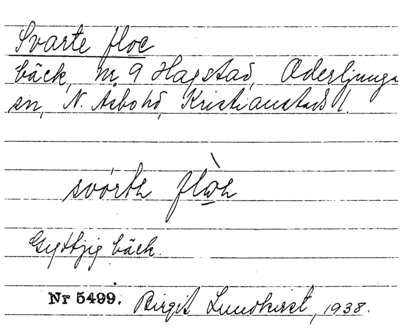 Svarte floe
bäck, m 9 Hagstad, Oderljunga
sn, N. Åsbo hd, Kristianstads l.
svórth flòh
Gyttjig bäck.
Nr 5499. Birgit Lundkvist, 1938.